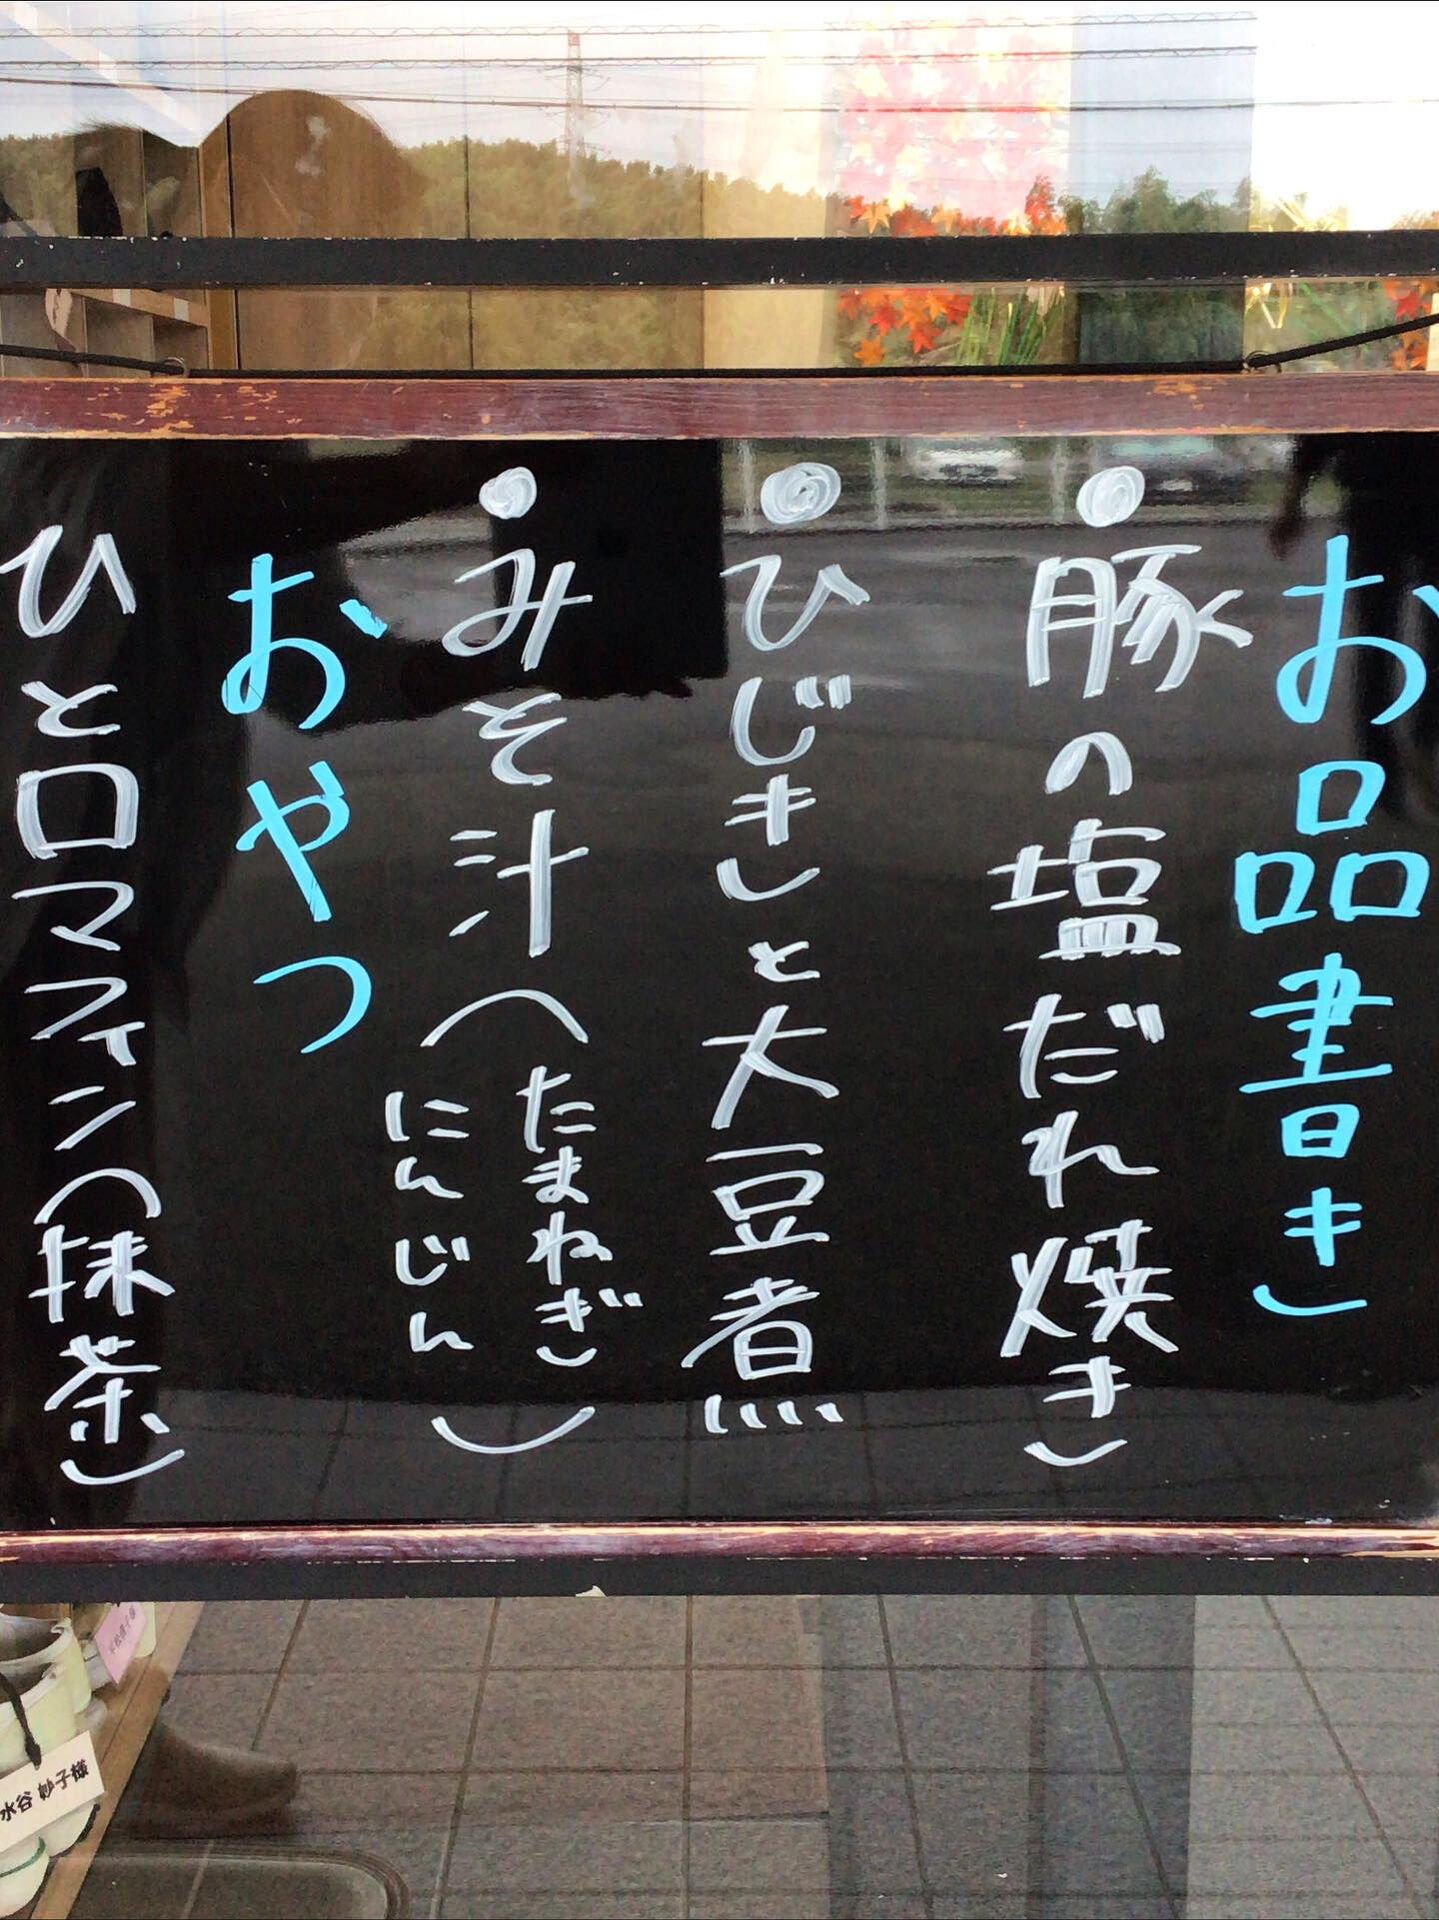 お品書き
●豚の塩だれ焼き
●ひじきと大豆煮
●みそ汁(たまねぎ
にんじん)
おやつ
ひと口マフィン(抹茶)
水谷 妙子様